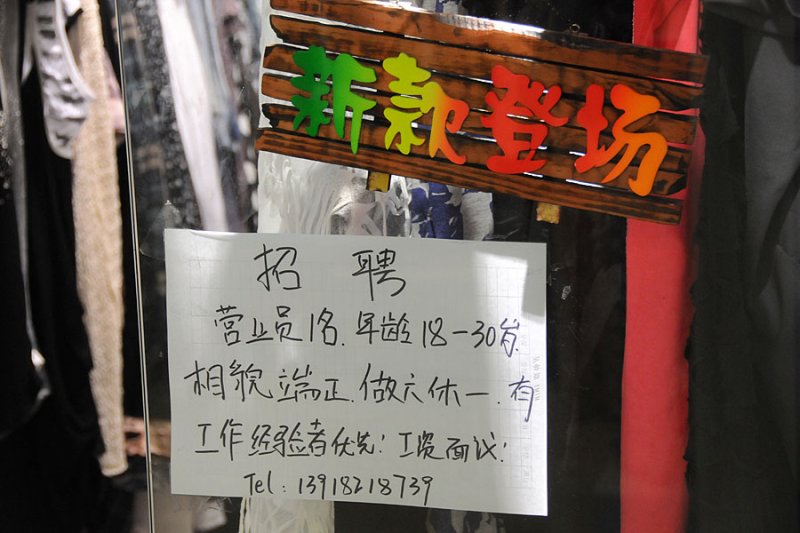 新款登场
招 聘
营业员1名.年龄18-30岁
相貌端正.做六休一.有
工作经验者优先!工资面议!
Tel:13918218739